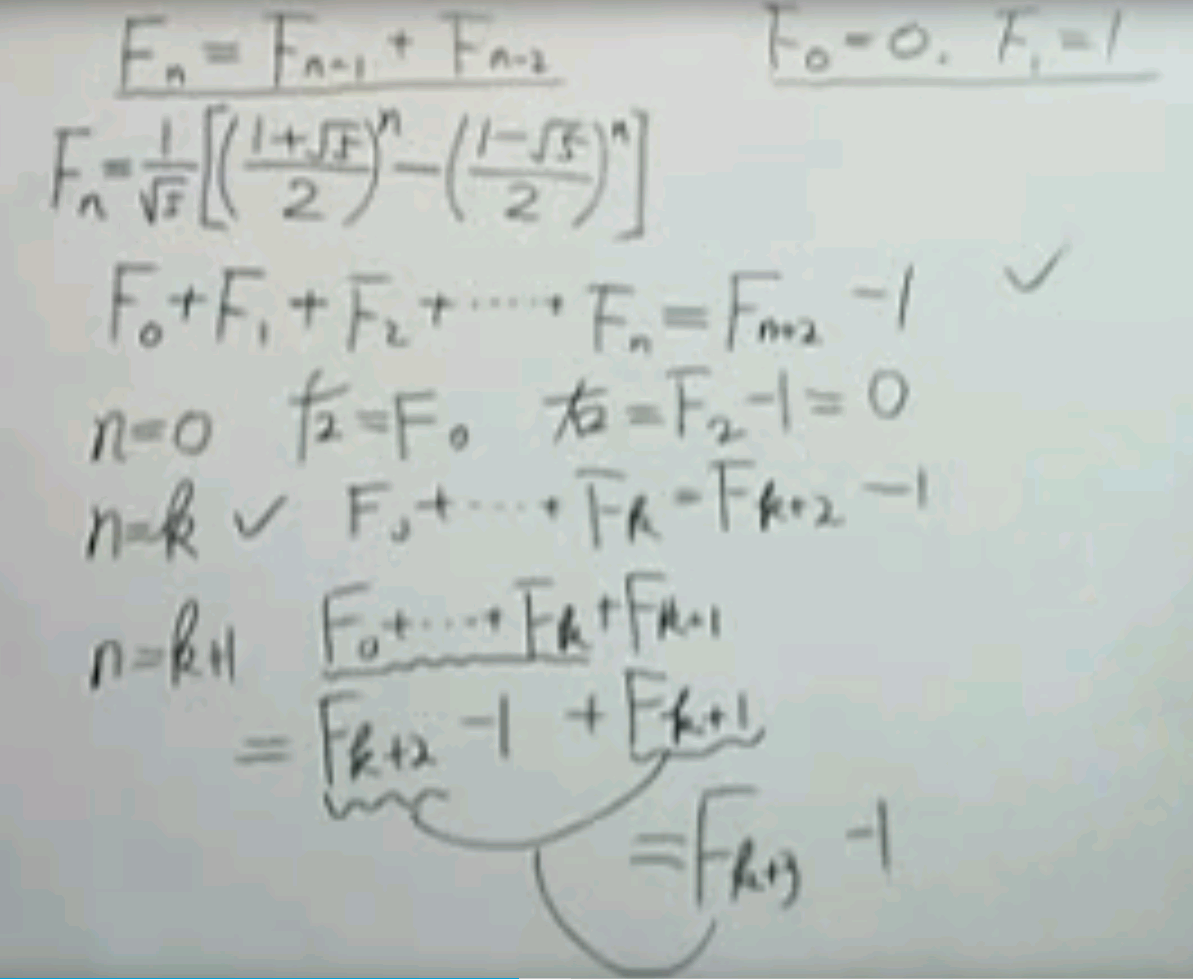 Fₙ = Fₙ₋₁ + Fₙ₋₂ F₀ = 0. F₁ = 1
Fₙ = 1/√5 [((1+√5)/2)ⁿ − ((1−√5)/2)ⁿ]
F₀ + F₁ + F₂ + ····· + Fₙ = Fₙ₊₂ − 1 ✓
n=0 左 = F₀ 右 = F₂ − 1 = 0
n=k ✓ F₀ + ···· + Fₖ = Fₖ₊₂ − 1
n=k+1 F₀ + ···· + Fₖ + Fₖ₊₁
= Fₖ₊₂ − 1 + Fₖ₊₁
= Fₖ₊₃ − 1